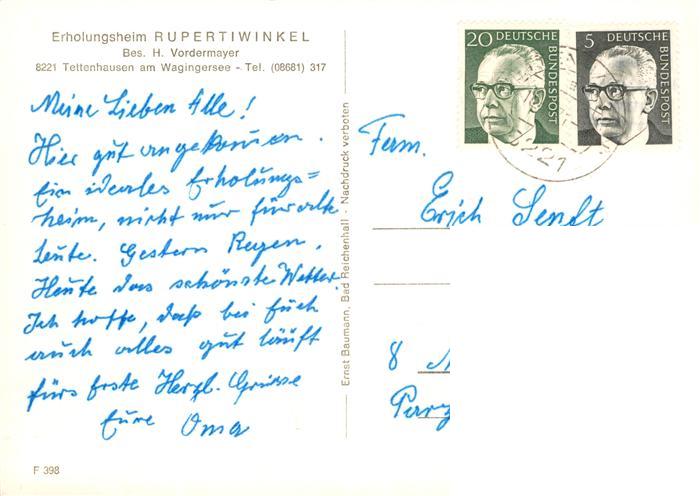 Erholungsheim RUPERTIWINKEL
Bes. H. Vordermayer
8221 Tettenhausen am Wagingersee - Tel. (08681) 317
Meine Lieben Alle!
Hier gut angekommen.
Ein ideales Erholungs=
heim, nicht nur für alte
Leute. Gestern Regen.
Heute das schönste Wetter.
Ich hoffe, daß bei Euch
auch alles gut läuft
fürs Erste Herzl. Grüsse
Eure Oma
F 398
Ernst Baumann, Bad Reichenhall - Nachdruck verboten
20 DEUTSCHE BUNDESPOST
5 DEUTSCHE BUNDESPOST
8221
Fam.
Erich Sendt
8 M
Parz